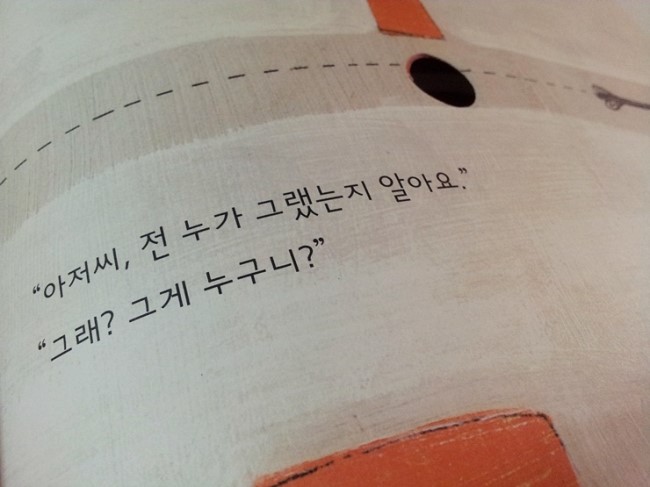 “아저씨, 전 누가 그랬는지 알아요.”
“그래? 그게 누구니?”